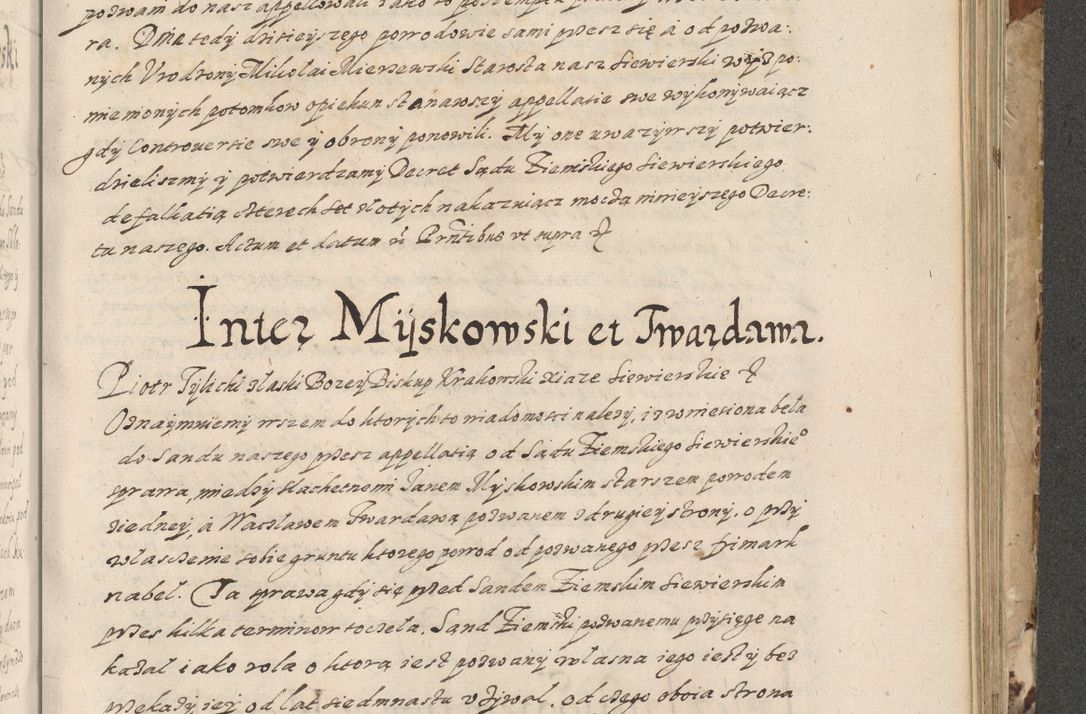 pozwani do nasz appellowali
ra. Dnia tedy dzisieyszego powodowie sami przez się a od pozwa:
nych Vrodzony Mikolai Mierzewski Starosta nasz Siewierski wysz po:
mienionych potomkow opiekun stanawszy appellatie swe wykonywaiącz
gdy Controuersie swe y obrony ponowili. My one vwazywszy potwier:
dzieliszmy y potwierdzamy Decret Sądu Ziemskiego Siewierskiego
defalkatią czterech set złotych nakazuiącz moczą ninieyszego Decre:
tu naszego. Actum et datum in Prntibus vt supra
Inter Myskowski et Twardawa.
Piotr Tylicki z łaski Bozey Biskup Krakowski Xiąze Siewierskie
Oznaymuiemy wszem do ktorych to wiadomosci nalezy, iz wniesiona bela
do Sandu naszego przez appellatią od Sądu Ziemskiego Siewierskie°
sprawa, miedzy slachetnemi Janem Myskowskim starszem powodem
z iedney, á Waczlawem Twardawą pozwanem z drugiey strony, o przy
wlaszczenie sobie gruntu ktorego powod od pozwanego przez frimark
nabel. Ta sprawa gdy się przed Sandem Ziemskim Siewierskim
przes kilka terminow toczela, Sand Ziemski pozwanemu przysięgę na
kazal iako rola o ktorą iest pozwany wlasna iego iest y bes
przekazy iey od lat siedmnastu vzywal, od czego oboia strona